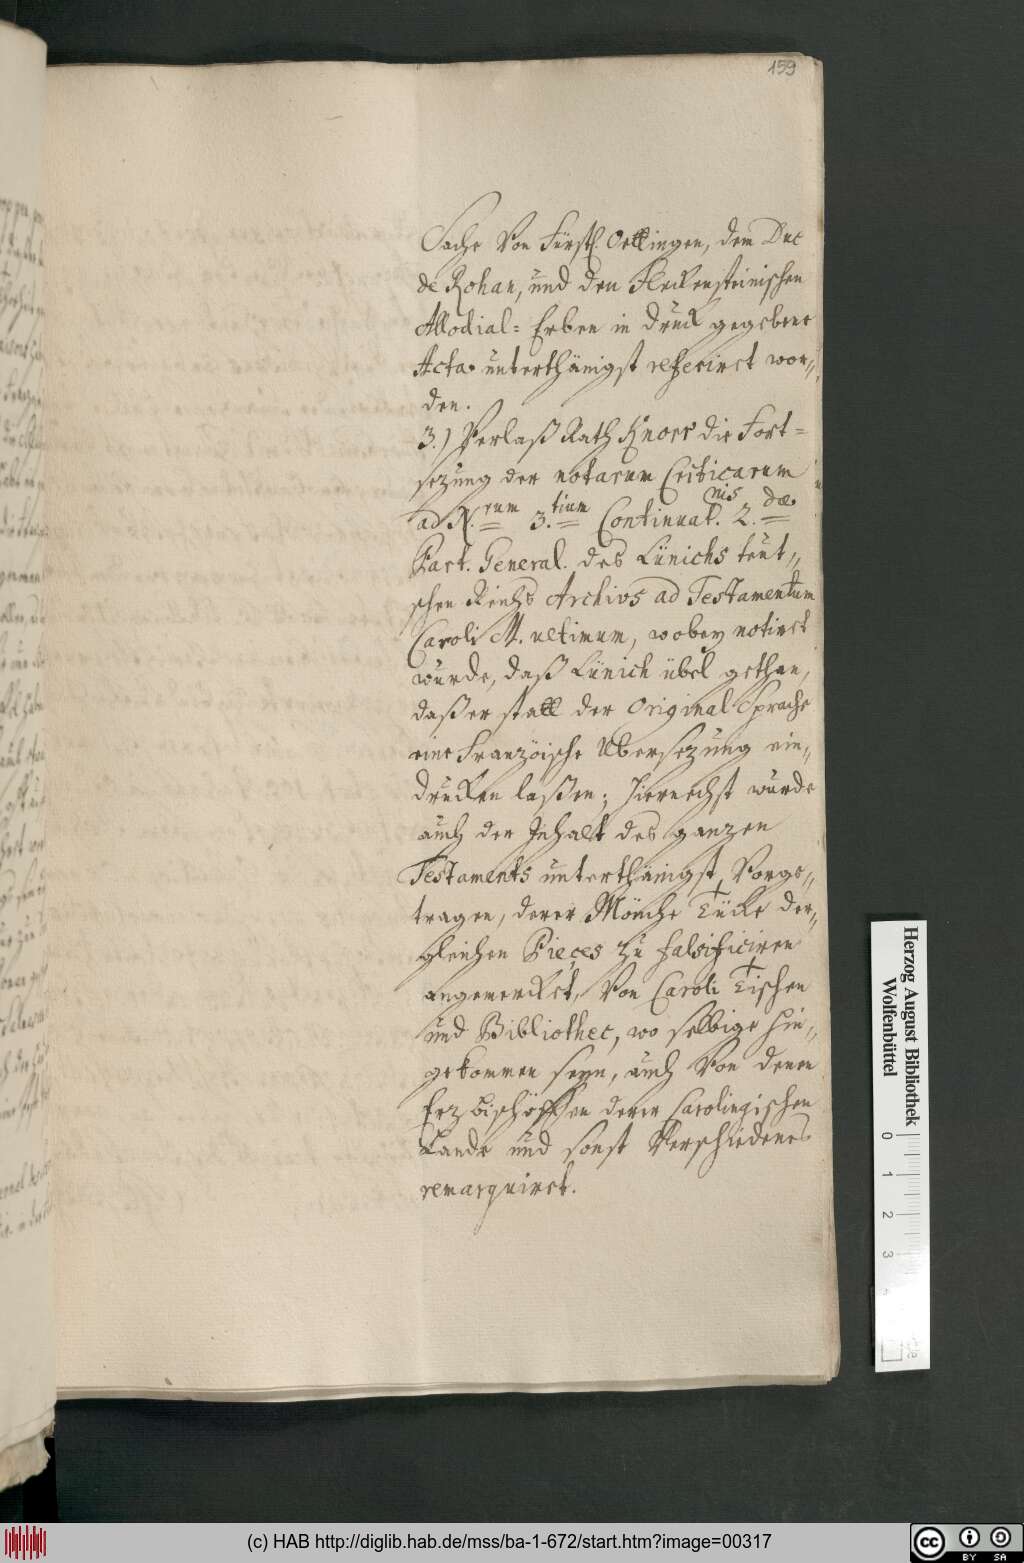 159
Sache von Fürstl. Oettingen, dem Duc
de Rohan, und den Fleckensteinischen
Allodial= Erben in druck gegebene
Acta unterthänigst referirct wor=
den.
3.) Verlaß Rath Knorr die Fort=
sezung der notarum Criticarum
ad N.rum 3.tium Continuat.nis 2.dæ
Part. General. des Lünichs teut=
schen Reichs Archivs ad Testamentum
Caroli M. ultimum, wobey notirct
wurde, daß Lünich übel gethan,
daß er statt der Original Sprache
eine Französche Ubersezung ein=
drucken laßen; hiernechst wurde
auch der Inhalt des ganzen
Testaments unterthänigst vorge=
tragen, derer Mönche Tücke der=
gleichen Pieçes zu falsificiren
angemercket, von Caroli Tischen
und Bibliothec, wo selbige hin=
gekommen seyn, auch von denen
Erzbischöffen derer Carolingischen
Lande und sonst verschiedenes
remarquirct.
Herzog August Bibliothek
Wolfenbüttel
0 1 2 3
(c) HAB http://diglib.hab.de/mss/ba-1-672/start.htm?image=00317
cc BY SA